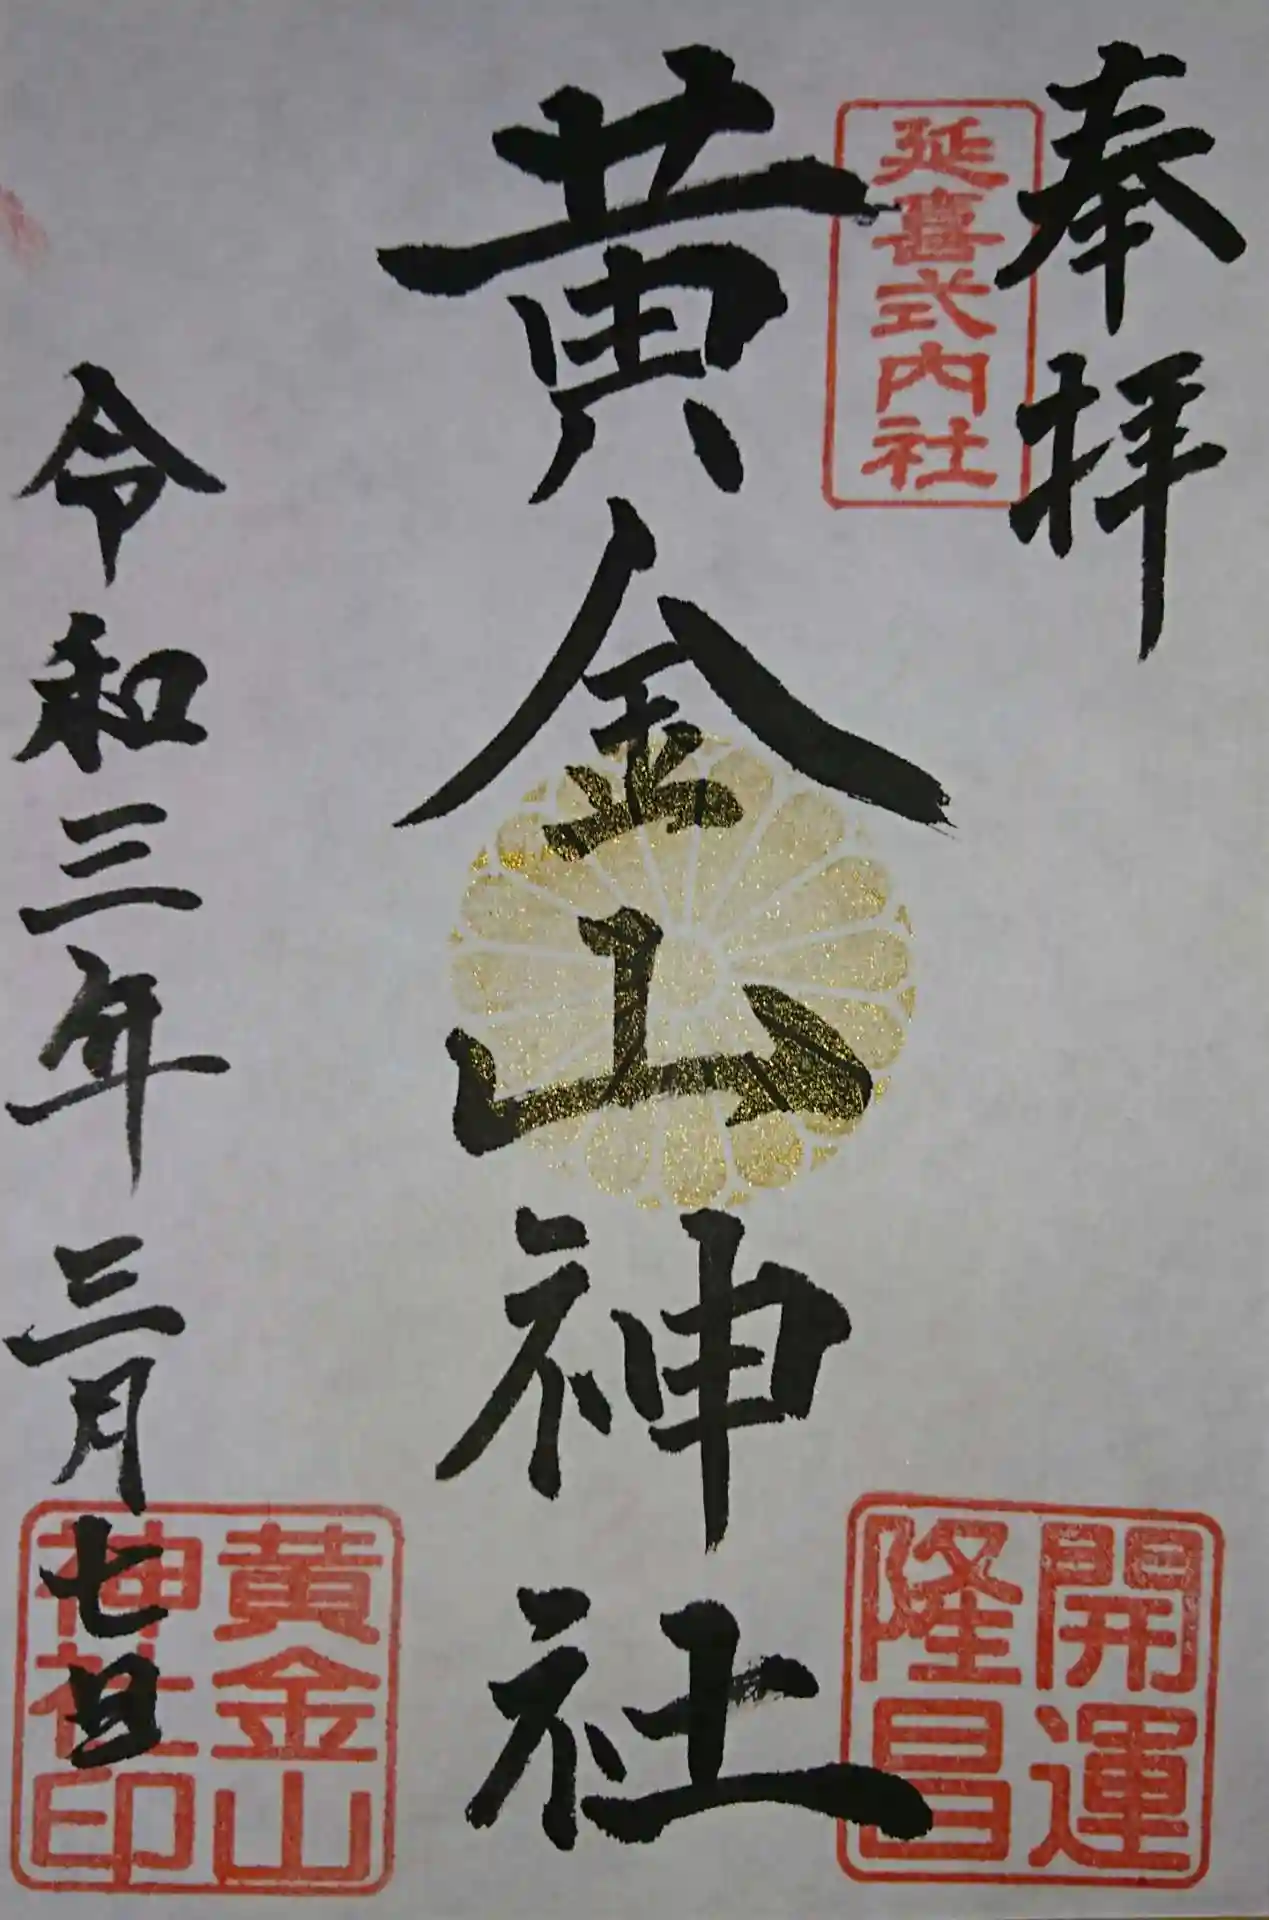 奉拝
延喜式内社
開運
隆昌
黄金山神社
令和三年三月七日
黄金山
神社印